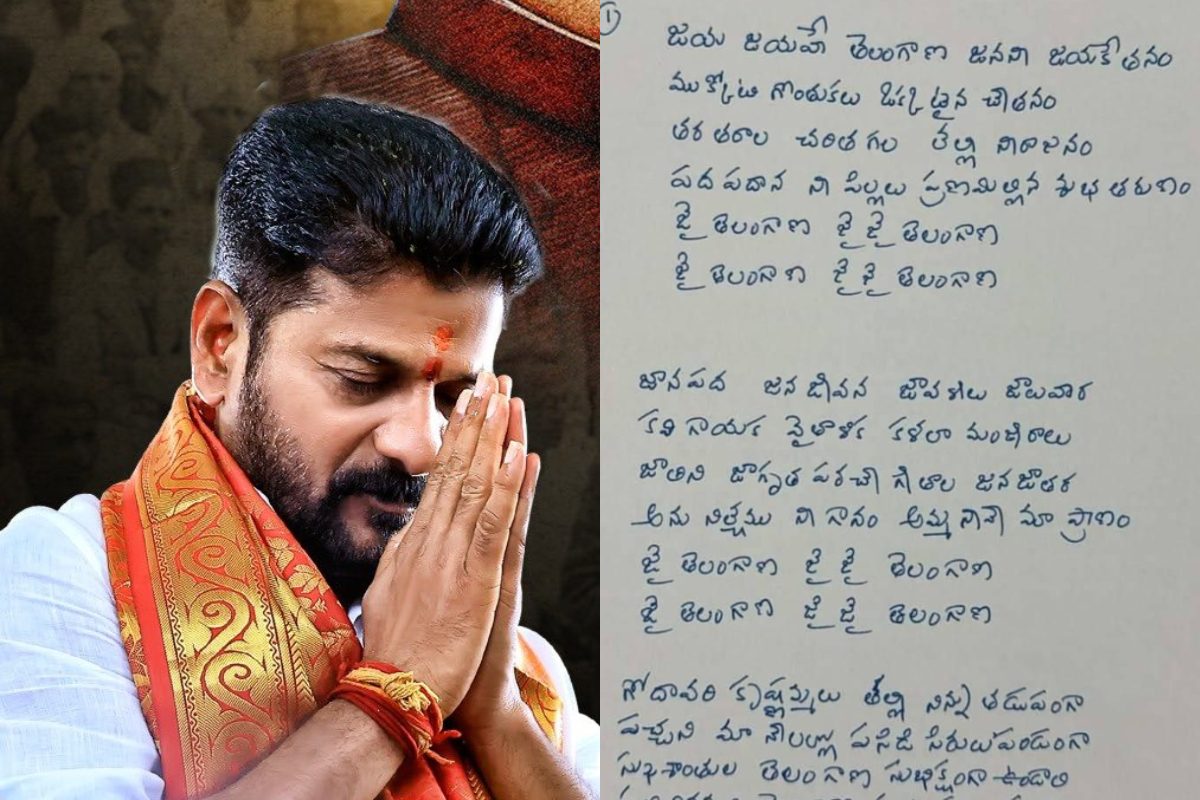 1
జయ జయహే తెలంగాణ జనని జయకేతనం
ముక్కోటి గొంతుకలు ఒక్కటైన చేతనం
తర తరాల చరిత గల తల్లి నీరాజనం
పద పదాన నీ పిల్లలు ప్రణమిల్లిన శుభ తరుణం
జై తెలంగాణ జై జై తెలంగాణ
జై తెలంగాణ జై జై తెలంగాణ
జానపద జన జీవన జావళీలు జాలువార
కవి గాయక వైతాళిక కళలా మంజీరాలు
జాతిని జాగృత పరచే గీతాల జన జాతర
అను నిత్యము నీ గానం అమ్మ నీవే మా ప్రాణం
జై తెలంగాణ జై జై తెలంగాణ
జై తెలంగాణ జై జై తెలంగాణ
గోదావరి కృష్ణమ్మలు తల్లి నిన్ను తడుపంగా
పచ్చని మా నేలల్లో పసిడి సిరులు పండంగా
సుఖశాంతుల తెలంగాణ సుభిక్షంగా ఉండాలి